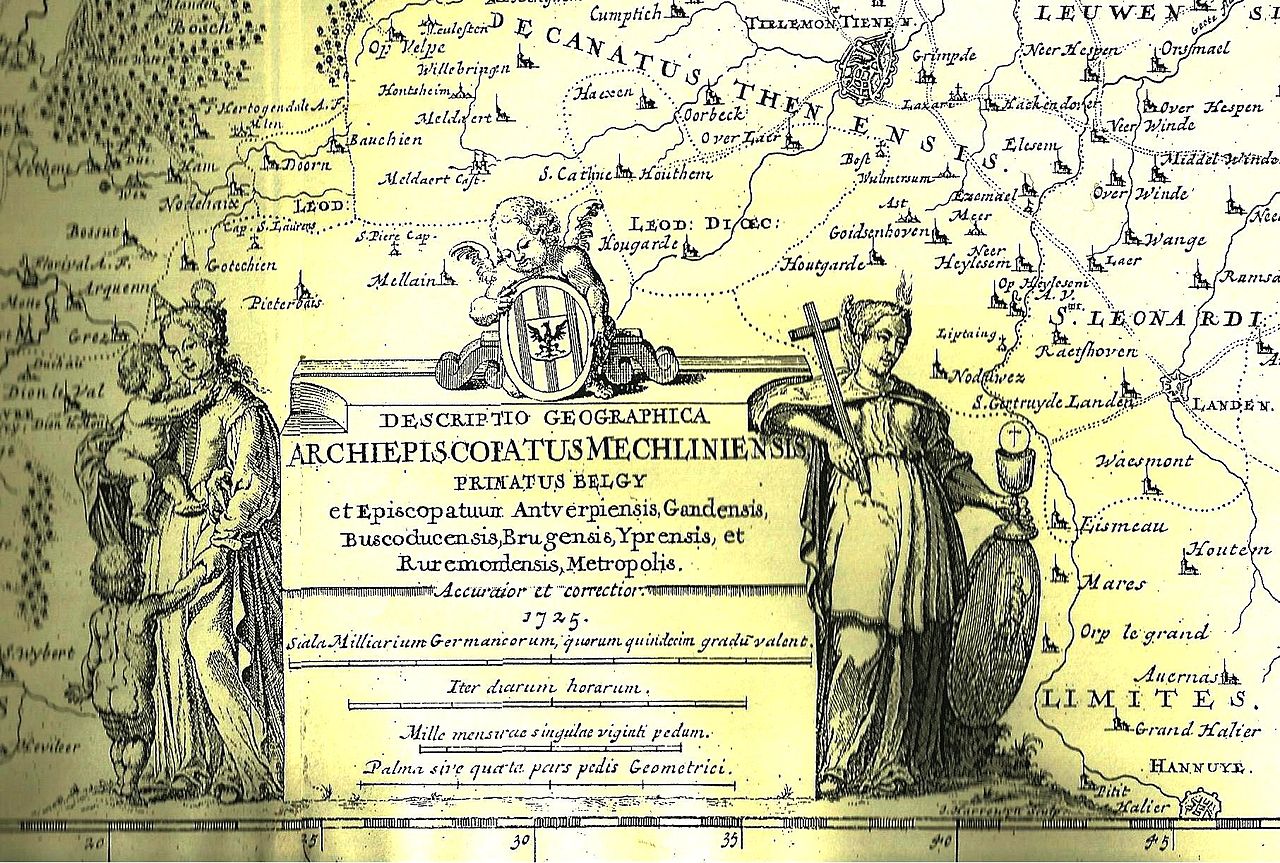 Bosch
Meulesten
Op Velpe
Willebringen
Hontsheim
Meldaert
Hertogendale A.F.
Bauchien
Ham
Doorn
Meldaert Cast.
Nodehaix
LEOD:
Cap. S. Laurens
S. Piere Cap.
Bossut
Florival A.F.
Gotechien
Arquenne
Pieterbais
Mellain
Grez
Dion le Val
S. Wybert
Cumptich
TIRLEMONT TIENEN.
LEUWEN
DECANATUS THENENSIS.
Haexen
Oorbeck
Over Laer
Grimpde
Neer Hespen
Onsmael
Hackendover
Over Hespen
Neer Winde
S. Catline
Houthem
Best
Wulmersum
Elesem
Middel Winde
Over Winde
Ezemael
Ast
Meer
LEOD: DIŒC:
Hougarde
Goidsenhoven
Wange
Houtgarde
Neer
Heylesem
Laer
Op Heylesem
A. V.
S.TÆ LEONARDI
Liptaing
Raetshoven
Noduwez
S. Gertruyde Landen
LANDEN.
Waesmont
Eismeau
Houtem
Mares
Orp le grand
Avernas
LIMITES.
Grand Halier
HANNUYE.
Petit
Halier
DESCRIPTIO GEOGRAPHICA
ARCHIEPISCOPATUS MECHLINIENSIS
PRIMATUS BELGY
et Episcopatuum Antverpiensis, Gandensis,
Buscoducensis, Brugensis, Yprensis, et
Ruremondensis, Metropolis.
Accuratior et correctior.
1725.
Scala Milliarium Germanicorum, quorum quindecim gradū valent.
Iter diarum horarum.
Mille mensurae singulae viginti pedum.
Palma sive quarta pars pedis Geometrici.
J. Harrewyn Sculp.
20 25 30 35 40 45